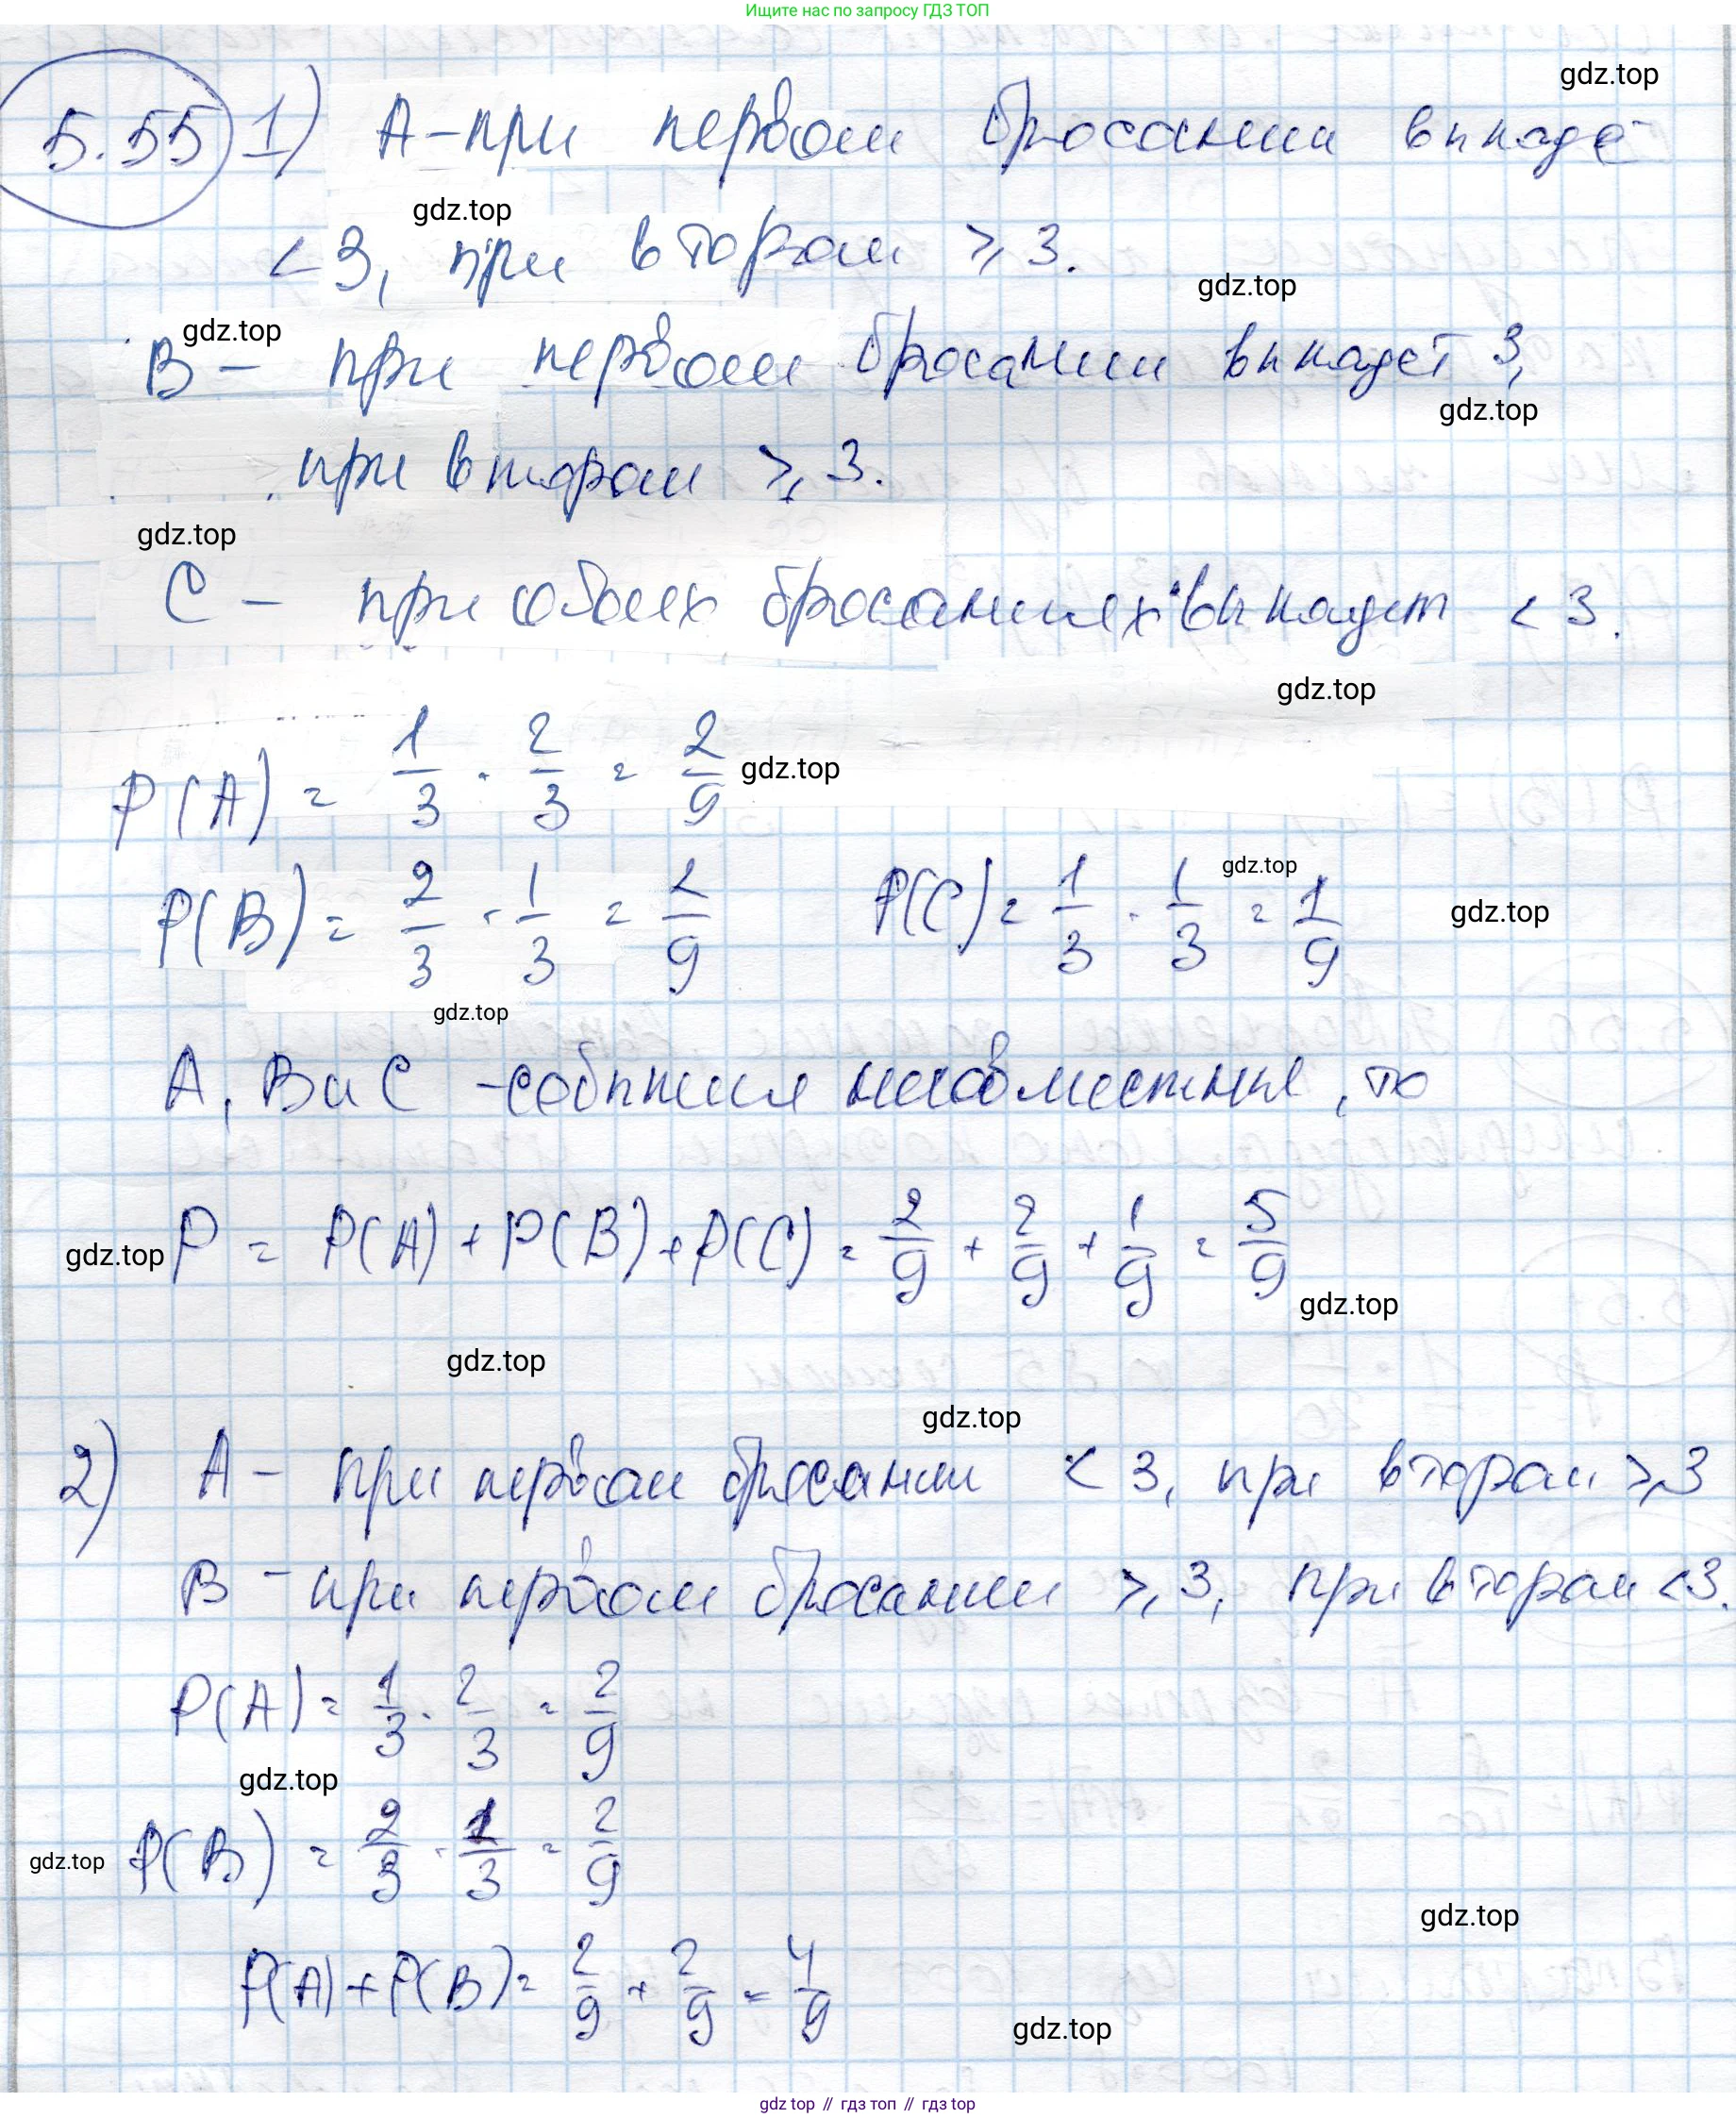 Ищите нас по запросу ГДЗ ТОП
gdz.top
5.55 1) A - при первом бросании выпаде
gdz.top
< 3, при втором ⩾ 3.
gdz.top
gdz.top
B - при первом бросании выпадет 3,
gdz.top
при втором ⩾ 3.
gdz.top
C - при обоих бросаниях выпадет < 3.
gdz.top
P(A) = 1/3 · 2/3 = 2/9
gdz.top
P(B) = 2/3 · 1/3 = 2/9 P(C) = 1/3 · 1/3 = 1/9
gdz.top
gdz.top
gdz.top
A, B и C - события несовместные, то
P = P(A) + P(B) + P(C) = 2/9 + 2/9 + 1/9 = 5/9
gdz.top
gdz.top
gdz.top
gdz.top
2) A - при первом бросании < 3, при втором ⩾ 3
B - при первом бросании ⩾ 3, при втором < 3.
P(A) = 1/3 · 2/3 = 2/9
gdz.top
P(B) = 2/3 · 1/3 = 2/9
gdz.top
gdz.top
P(A) + P(B) = 2/9 + 2/9 = 4/9
gdz.top
gdz top // гдз топ // гдз top